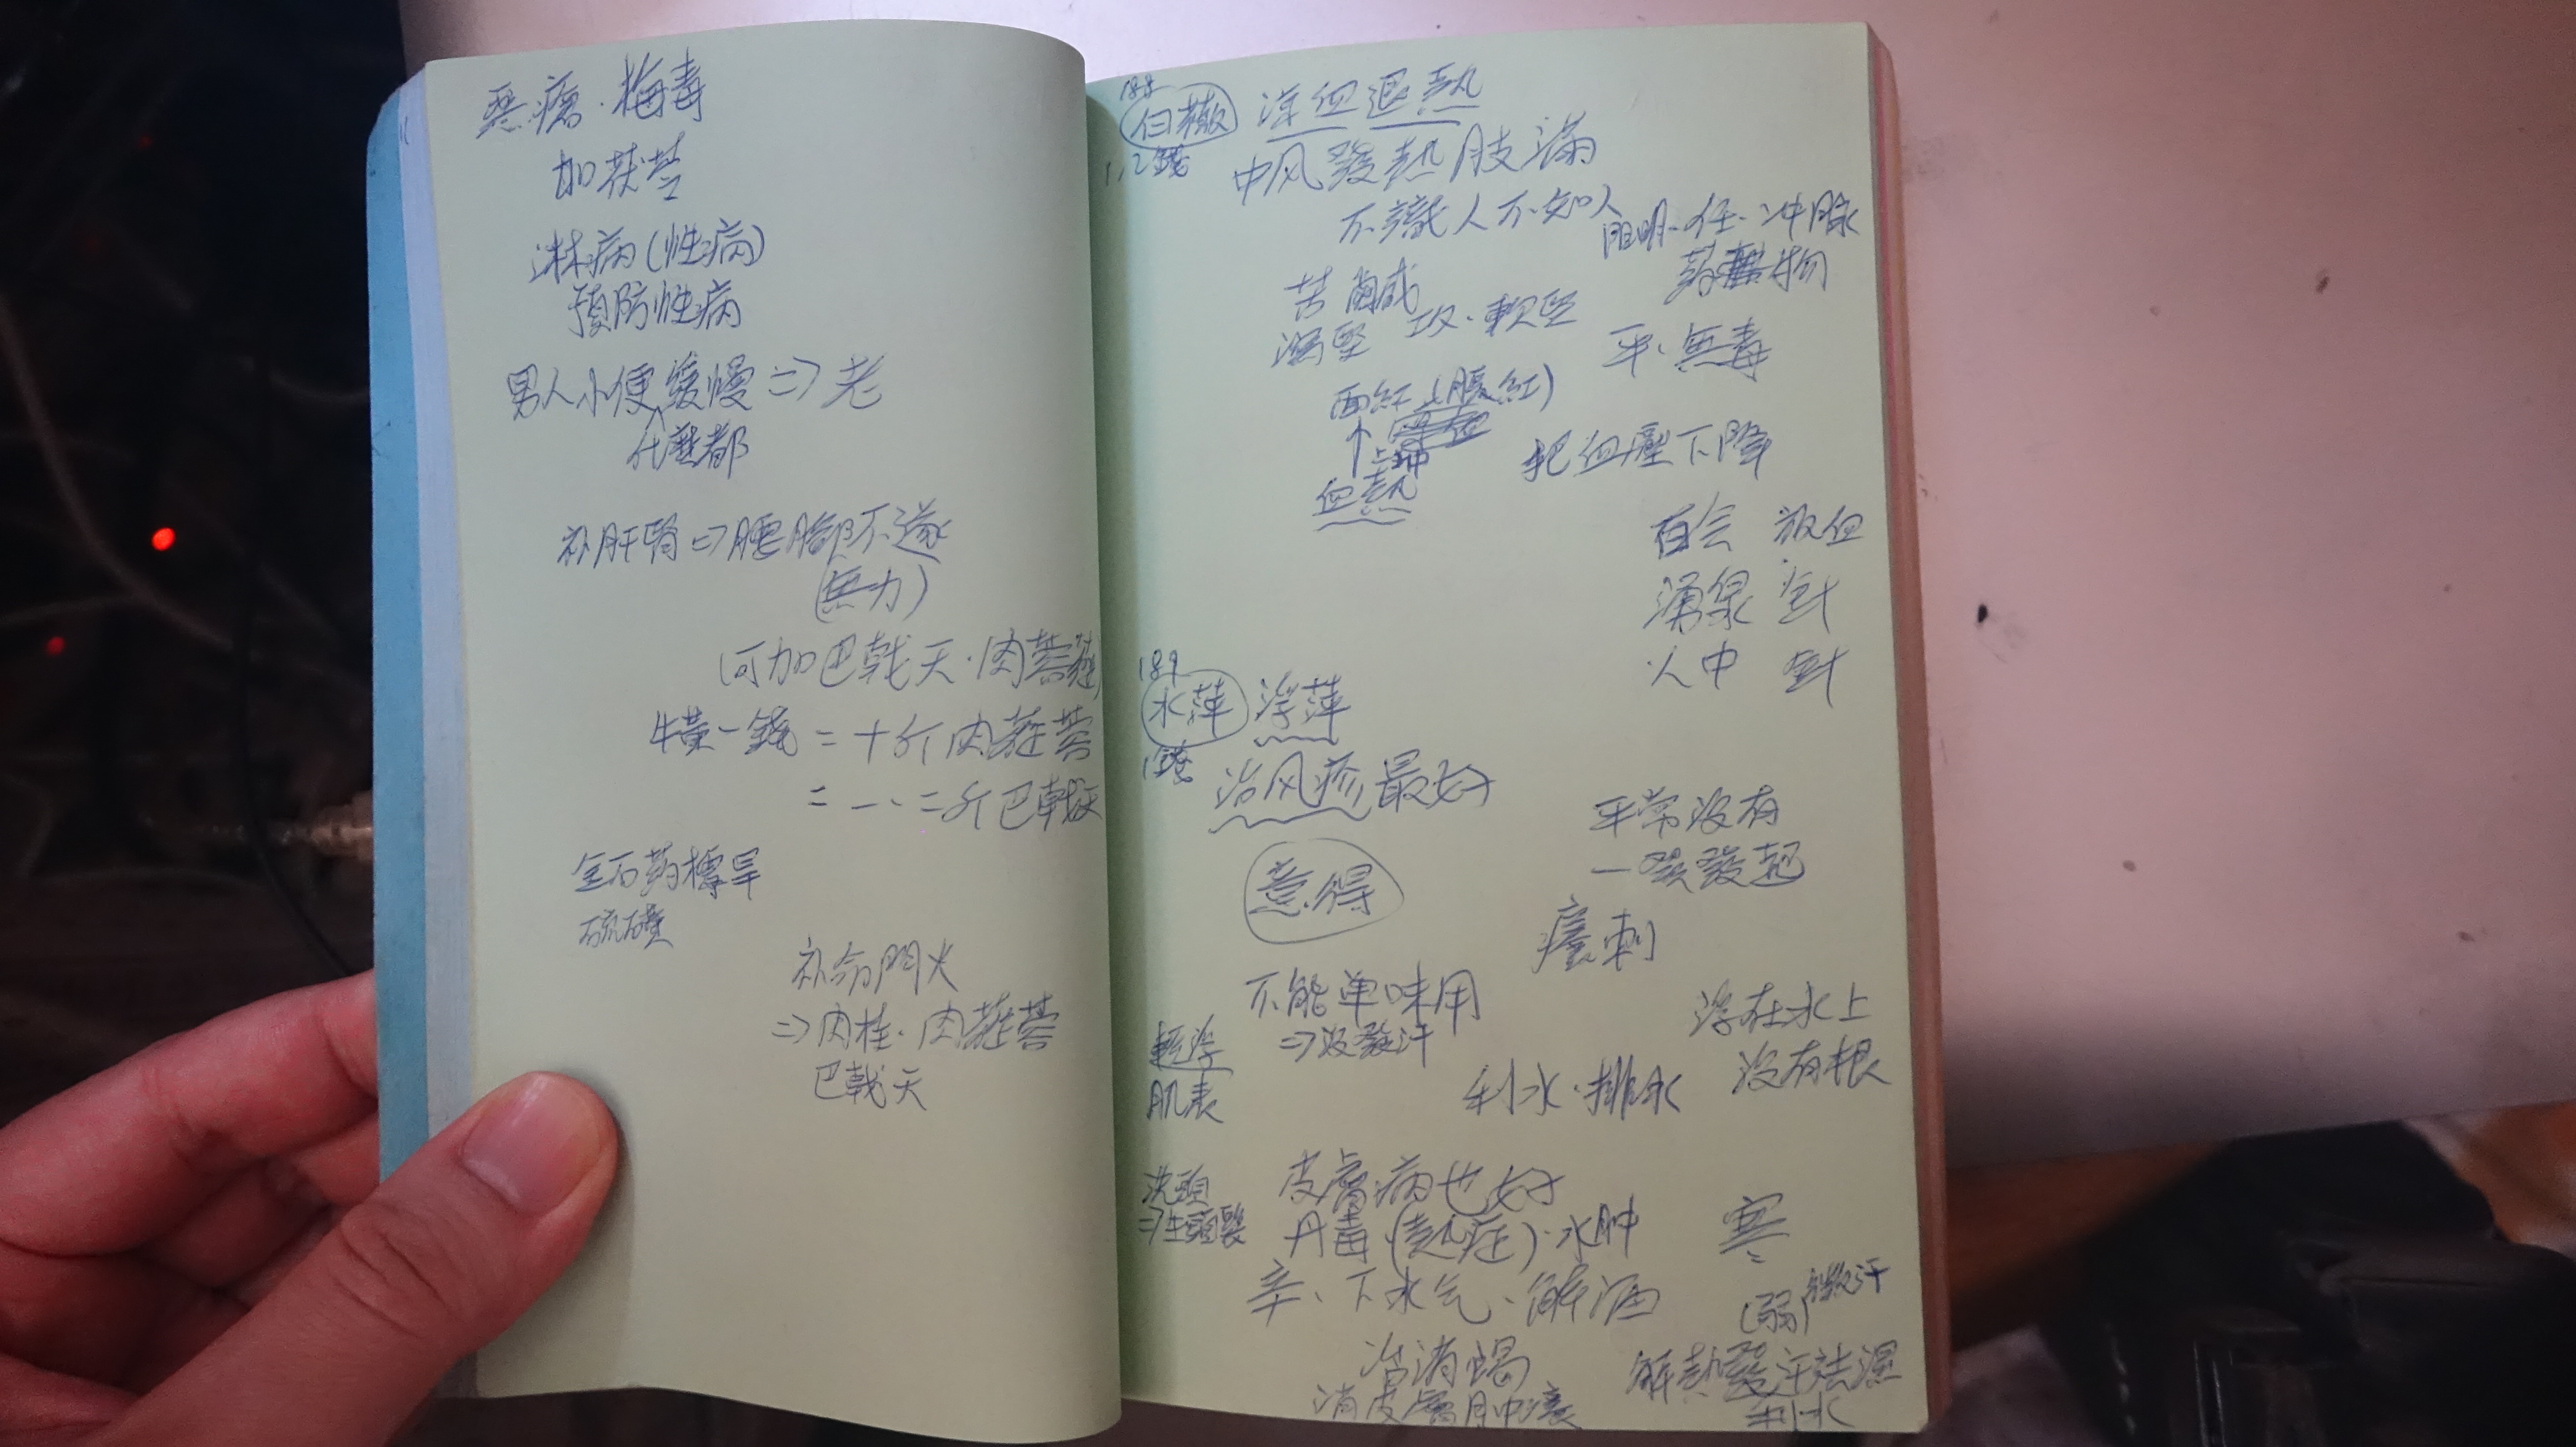 惡瘡．梅毒
加茯苓
淋病(性病)
預防性病
男人小便緩慢 => 老
什麼都
补肝腎 => 腰腳不遂
(無力)
可加巴戟天．肉蓉蓯
一錢 = 十斤肉蓯蓉
= 一、二斤巴戟天
金石药標旱
硫磺
补命門火
=> 肉桂．肉蓯蓉
巴戟天
188
白薇 涼血退熱
1,2錢
中风發熱肢滿
不識人不知人
陽明．任．冲脉
药物
苦 鹹
瀉堅 攻．軟堅
平、無毒
面紅 (腮紅)
↑上冲
血熱
把血壓下降
百会 放血
湧泉 針
人中 針
189
水萍 浮萍
1錢
治风疹最好
平常沒有
一咳發起
意.得
瘙刺
不能單味用
=> 沒發汗
輕浮
肌表
浮在水上
沒有根
利水．排水
洗頭
=> 生頭髮
皮膚病也好
丹毒(熱症)．水肿
寒
辛、下水气、解酒
(弱) 微汗
治消渴
消皮膚腫瘍
解熱發汗祛濕
利水